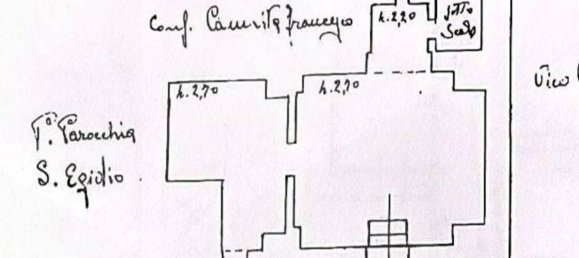 h. 2,20
sotto
Scala
Conf. Francesco
h. 2,70
h. 2,70
Vico
P. Parocchia
S. Egidio